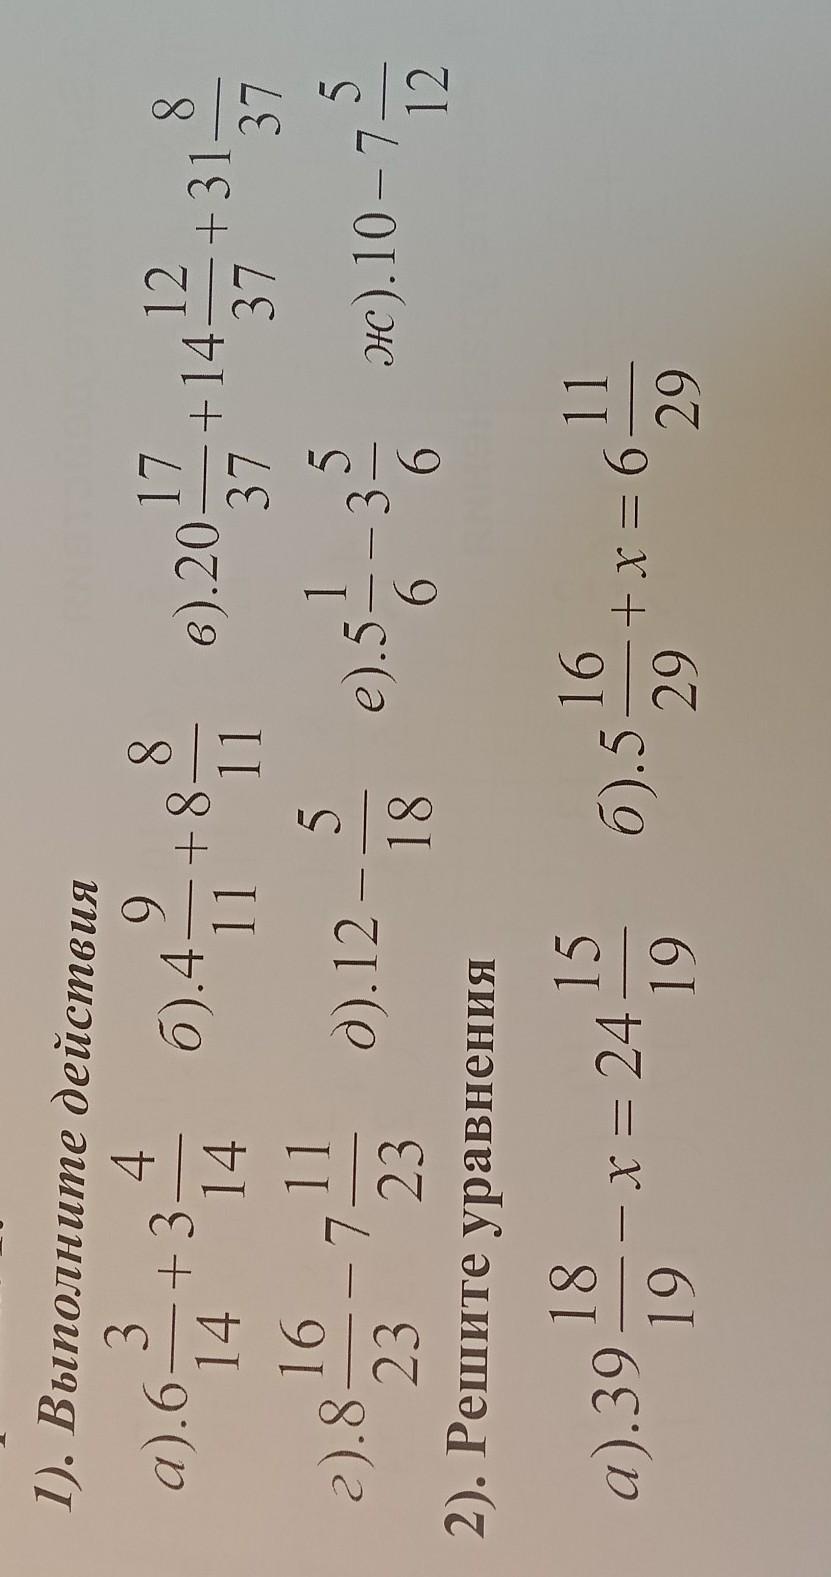 1). Выполните действия
а).6 3/14 + 3 4/14 б).4 9/11 + 8 8/11 в).20 17/37 + 14 12/37 + 31 8/37
г).8 16/23 − 7 11/23 д).12 − 5/18 е).5 1/6 − 3 5/6 ж).10 − 7 5/12
2). Решите уравнения
а).39 18/19 − x = 24 15/19 б).5 16/29 + x = 6 11/29